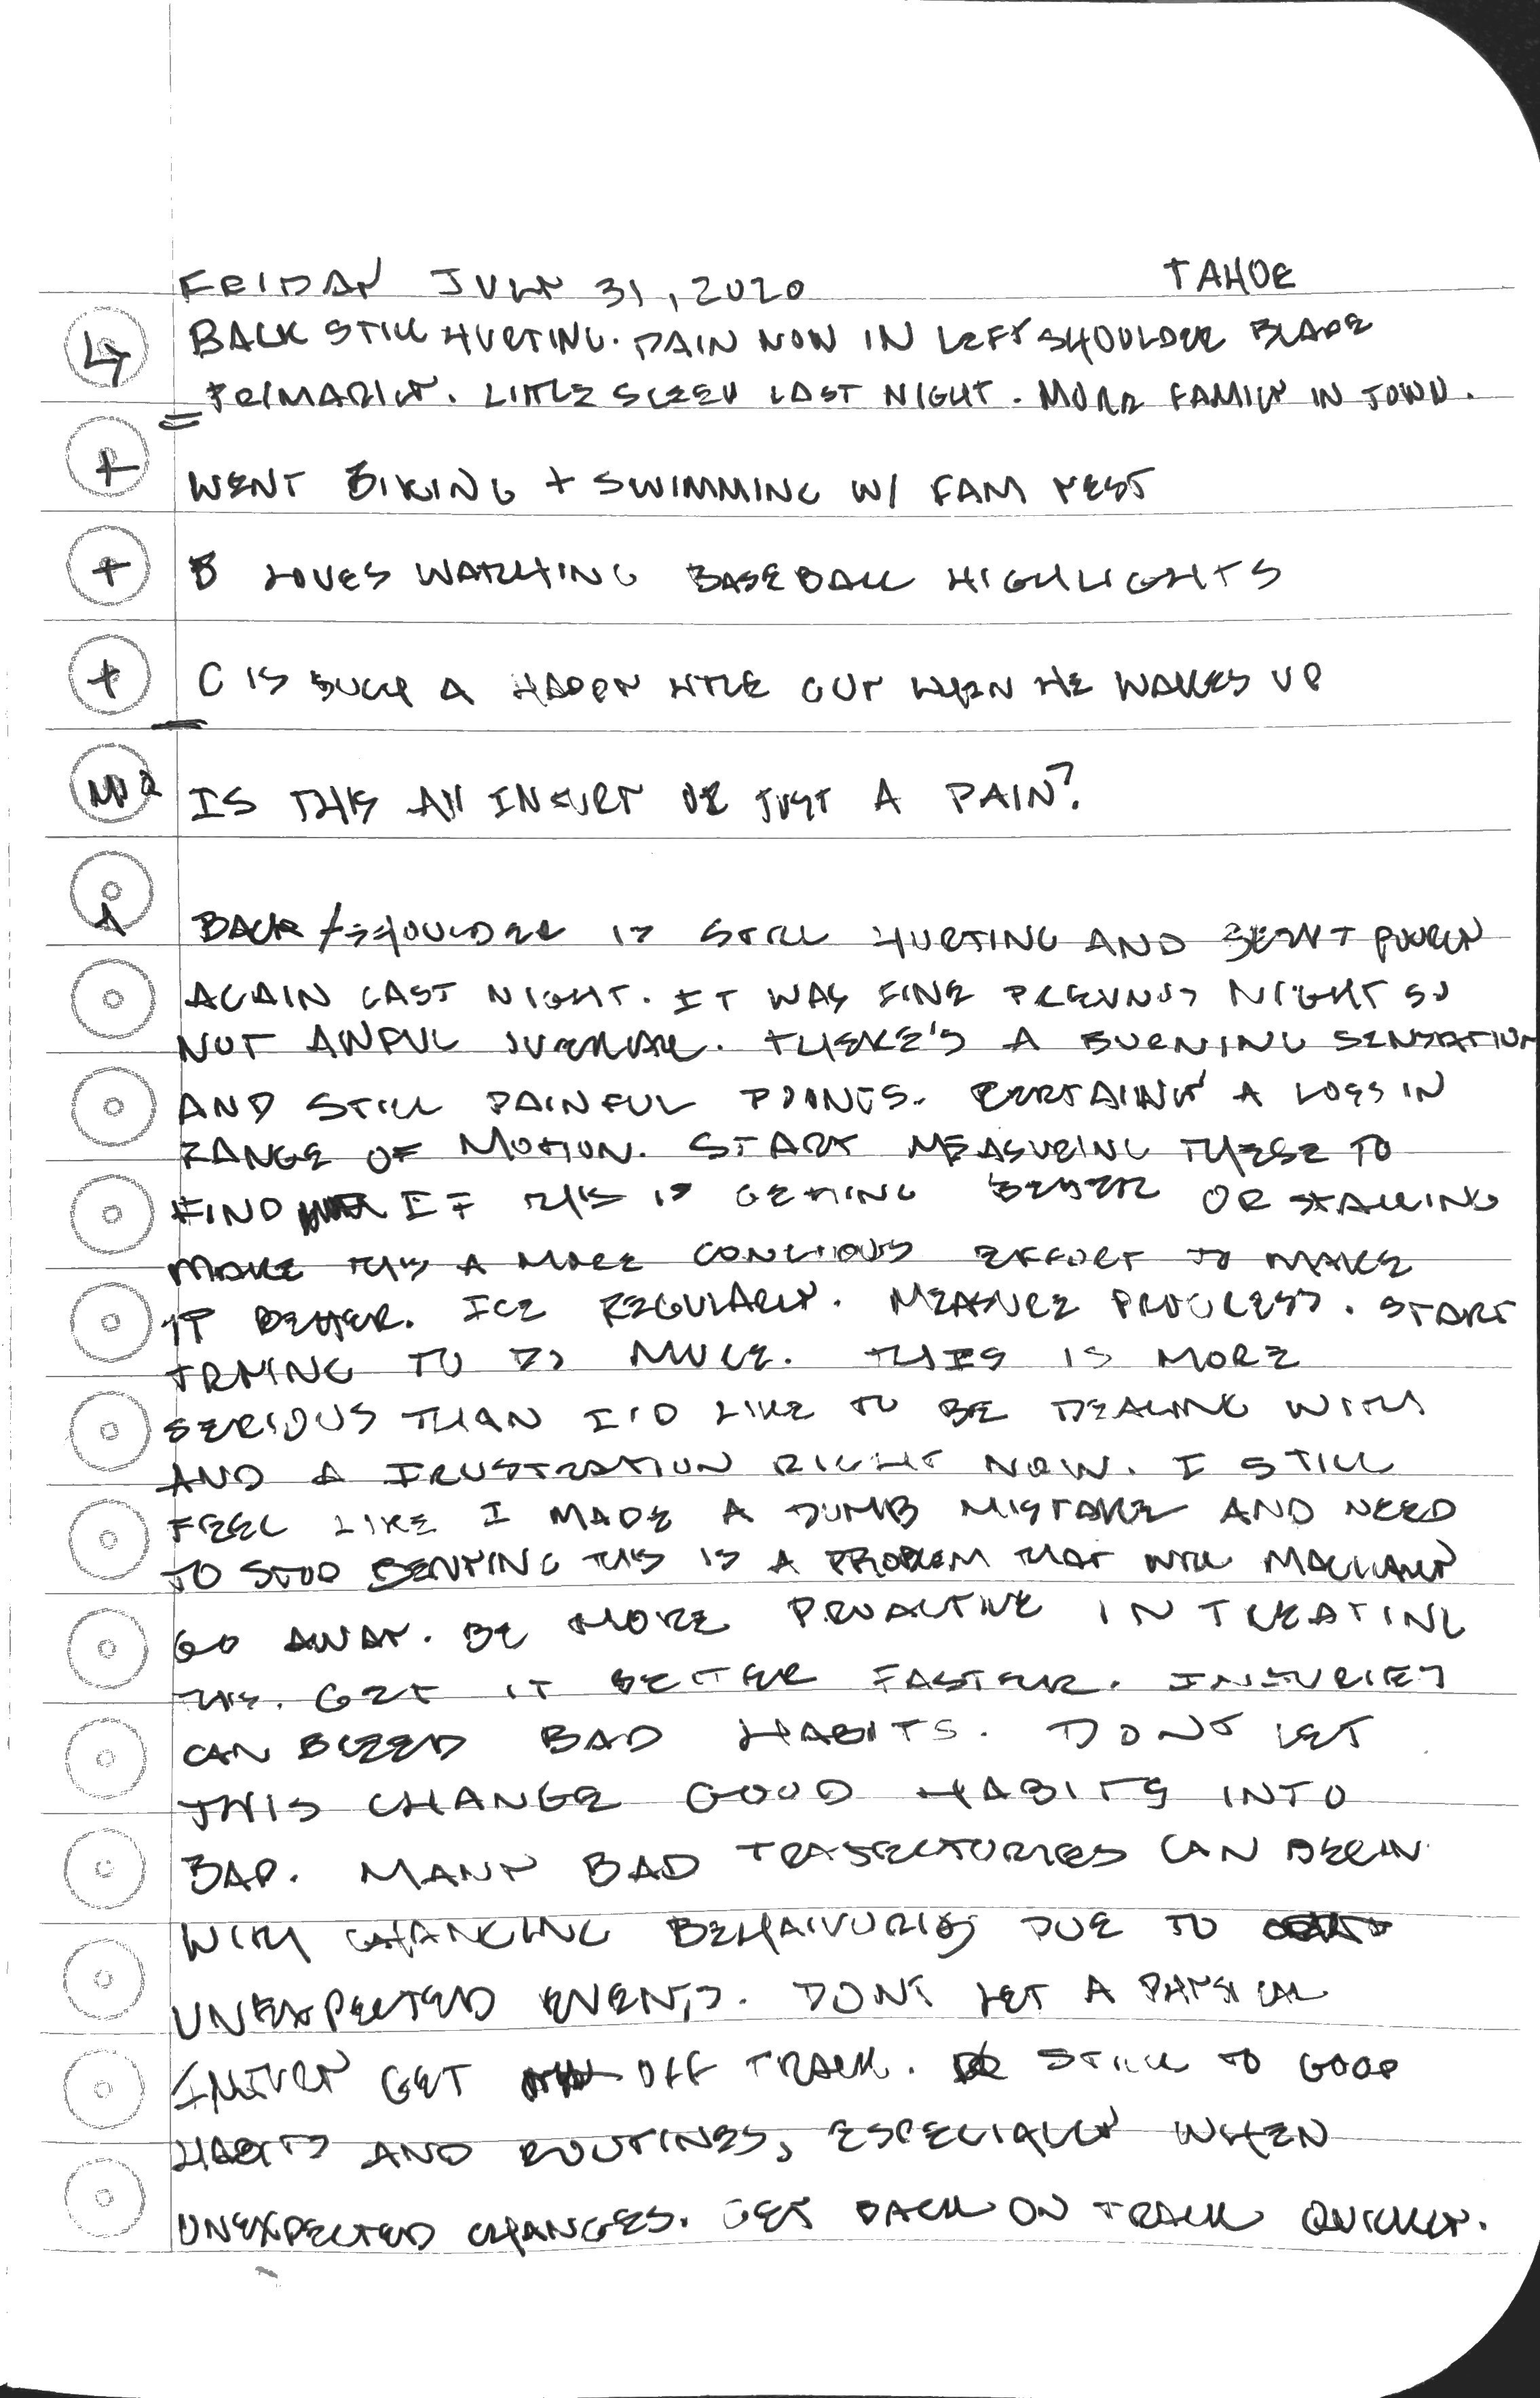 FRIDAY JULY 31, 2020 TAHOE
4 BACK STILL HURTING. PAIN NOW IN LEFT SHOULDER BLADE
= PRIMARILY. LITTLE SLEEP LAST NIGHT. MORE FAMILY IN TOWN.
+ WENT BIKING + SWIMMING W/ FAM YEST
+ B LOVES WATCHING BASEBALL HIGHLIGHTS
+ C IS SUCH A HAPPY LITTLE GUY WHEN HE WAKES UP
IS THIS AN INJURY OR JUST A PAIN?
BACK / SHOULDER IS STILL HURTING AND POORLY
AGAIN LAST NIGHT. IT WAS FINE PREVIOUS NIGHT SO
NOT AWFUL OVERALL. THERE'S A BURNING SENSATION
AND STILL PAINFUL POINTS. CERTAINLY A LOSS IN
RANGE OF MOTION. START MEASURING THESE TO
FIND IF THIS IS GETTING BETTER OR STALLING
MAKE THIS A MORE CONCIOUS EFFORT TO MAKE
IT BETTER. ICE REGULARLY. MEASURE PROGRESS. START
TRYING TO DO MORE. THIS IS MORE
SERIOUS THAN I'D LIKE TO BE DEALING WITH
AND A FRUSTRATION RIGHT NOW. I STILL
FEEL LIKE I MADE A DUMB MISTAKE AND NEED
TO STOP DENYING THIS IS A PROBLEM THAT WILL MAGICALLY
GO AWAY. BE MORE PROACTIVE IN TREATING
THIS. GET IT BETTER FASTER. INJURIES
CAN BREED BAD HABITS. DON'T LET
THIS CHANGE GOOD HABITS INTO
BAD. MANY BAD TRAJECTORIES CAN BEGIN
WITH CHANGING BEHAIVORIS DUE TO
UNEXPECTED EVENTS. DON'T LET A PHYSICAL
INJURY GET OFF TRACK. STICK TO GOOD
HABITS AND ROUTINES, ESPECIALLY WHEN
UNEXPECTED CHANGES. GET BACK ON TRACK QUICKLY.